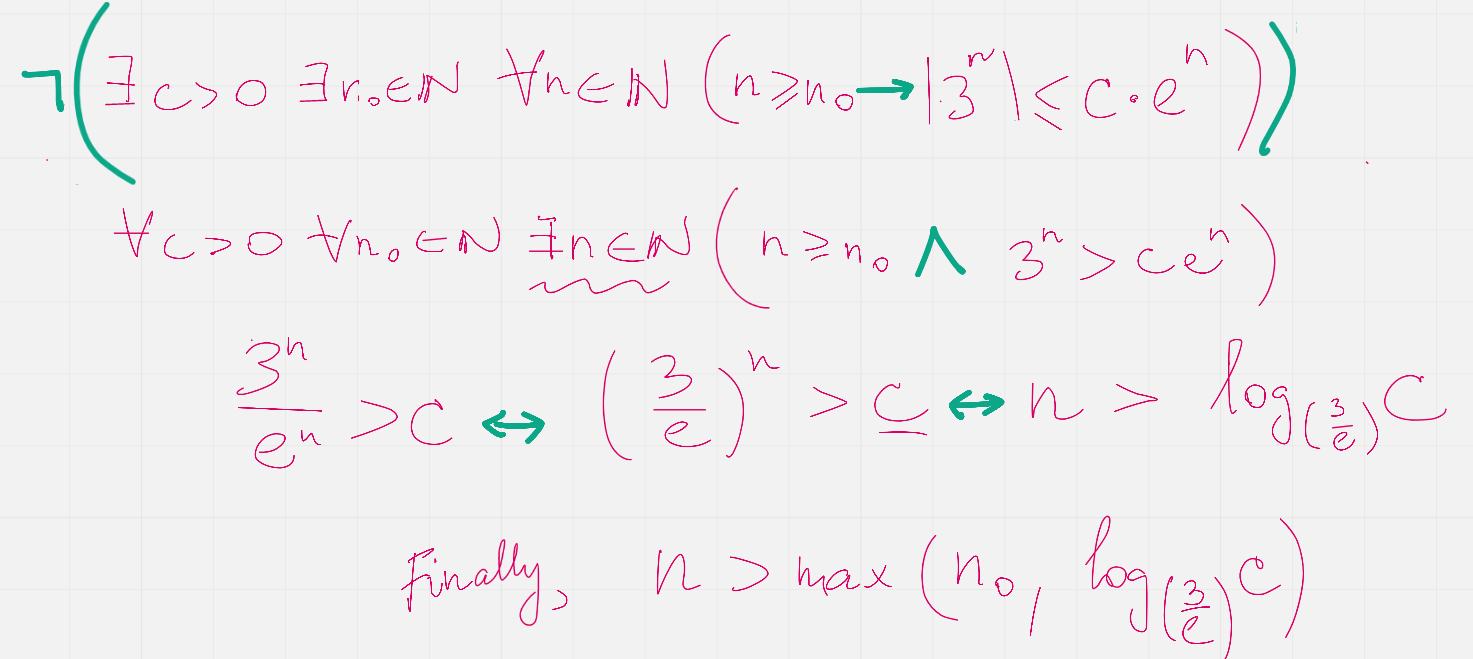 ¬(∃c>0 ∃n₀∈ℕ ∀n∈ℕ (n≥n₀→|3ⁿ|≤c·eⁿ))
∀c>0 ∀n₀∈ℕ ∃n∈ℕ (n≥n₀ ∧ 3ⁿ>ceⁿ)
3ⁿ/eⁿ>c ↔ (3/e)ⁿ>c ↔ n>log_(3/e) c
Finally, n>max(n₀, log_(3/e) c)